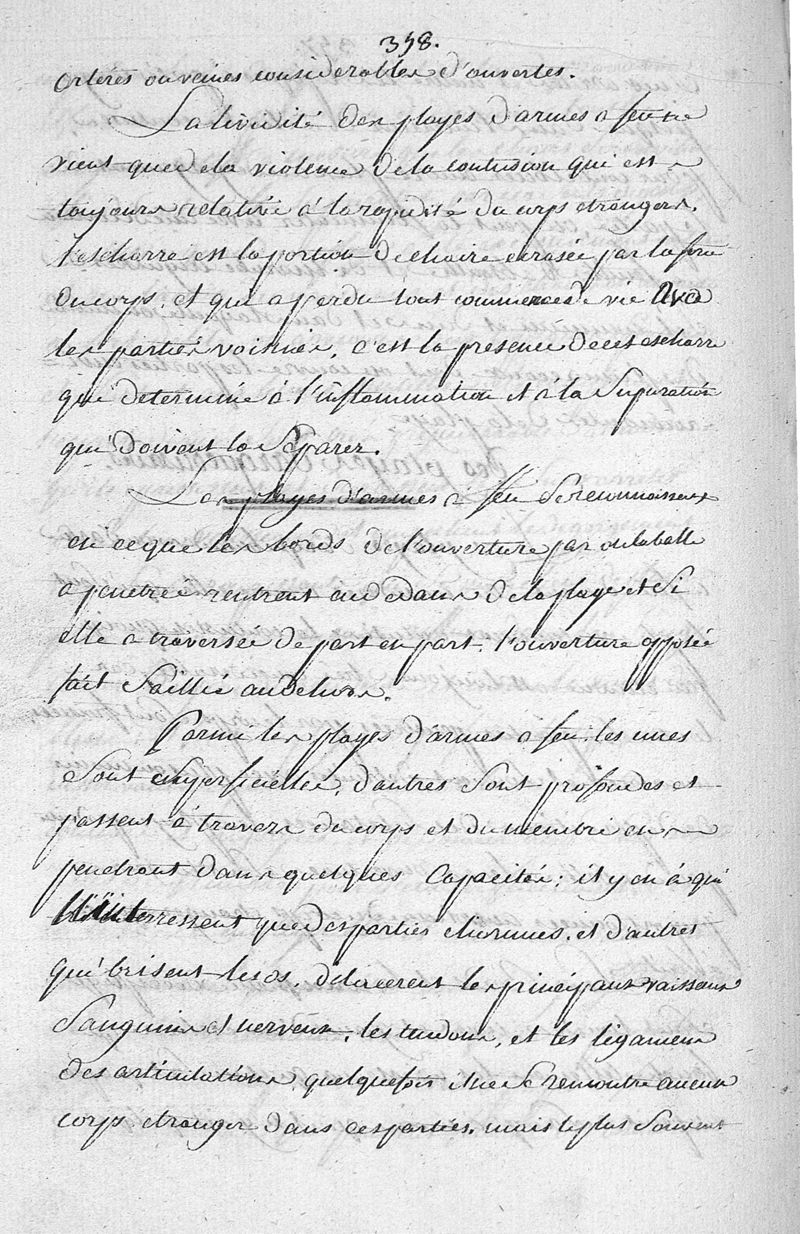 358.
arterès ou veines considerables d'ouvertes.
La lividité des playes d'armes a feu ne
vient que de la violence de la contusion qui est
toujours relative à la rapidité du corps etrangers.
l'escharre est la portion de chaire ecrasée par la force
du corps, et qui a perdu tout commerce de vie avec
les partiés voisines, c'est la presence de ces escharre
que determine à l'inflammation et à la supuration
qui doivent la séparer.
Les playes d'armes a feu se reconnoissent
en ce que les bords de l'ouverture par ou la balle
a penetrée rentrent au dedans de la playe et si
elle a traversée de part en part, l'ouverture opposée
fait saillie au dehors.
Parmi les playes d'armes a feu, les unes
sont superficielles, d'autres sont profondes et
passent à travers du corps et du membre en
penetrant dans quelques capacités; il y en à qui
n'interressent que des parties charnues, et d'autres
qui brisent les os, dilacerent les principaux vaisseaux
sanguins et nerveux, les tendons, et les ligamens
des articulations, quelquefois il ne se rencontre aucun
corps etranger dans ces parties, mais le plus souvent